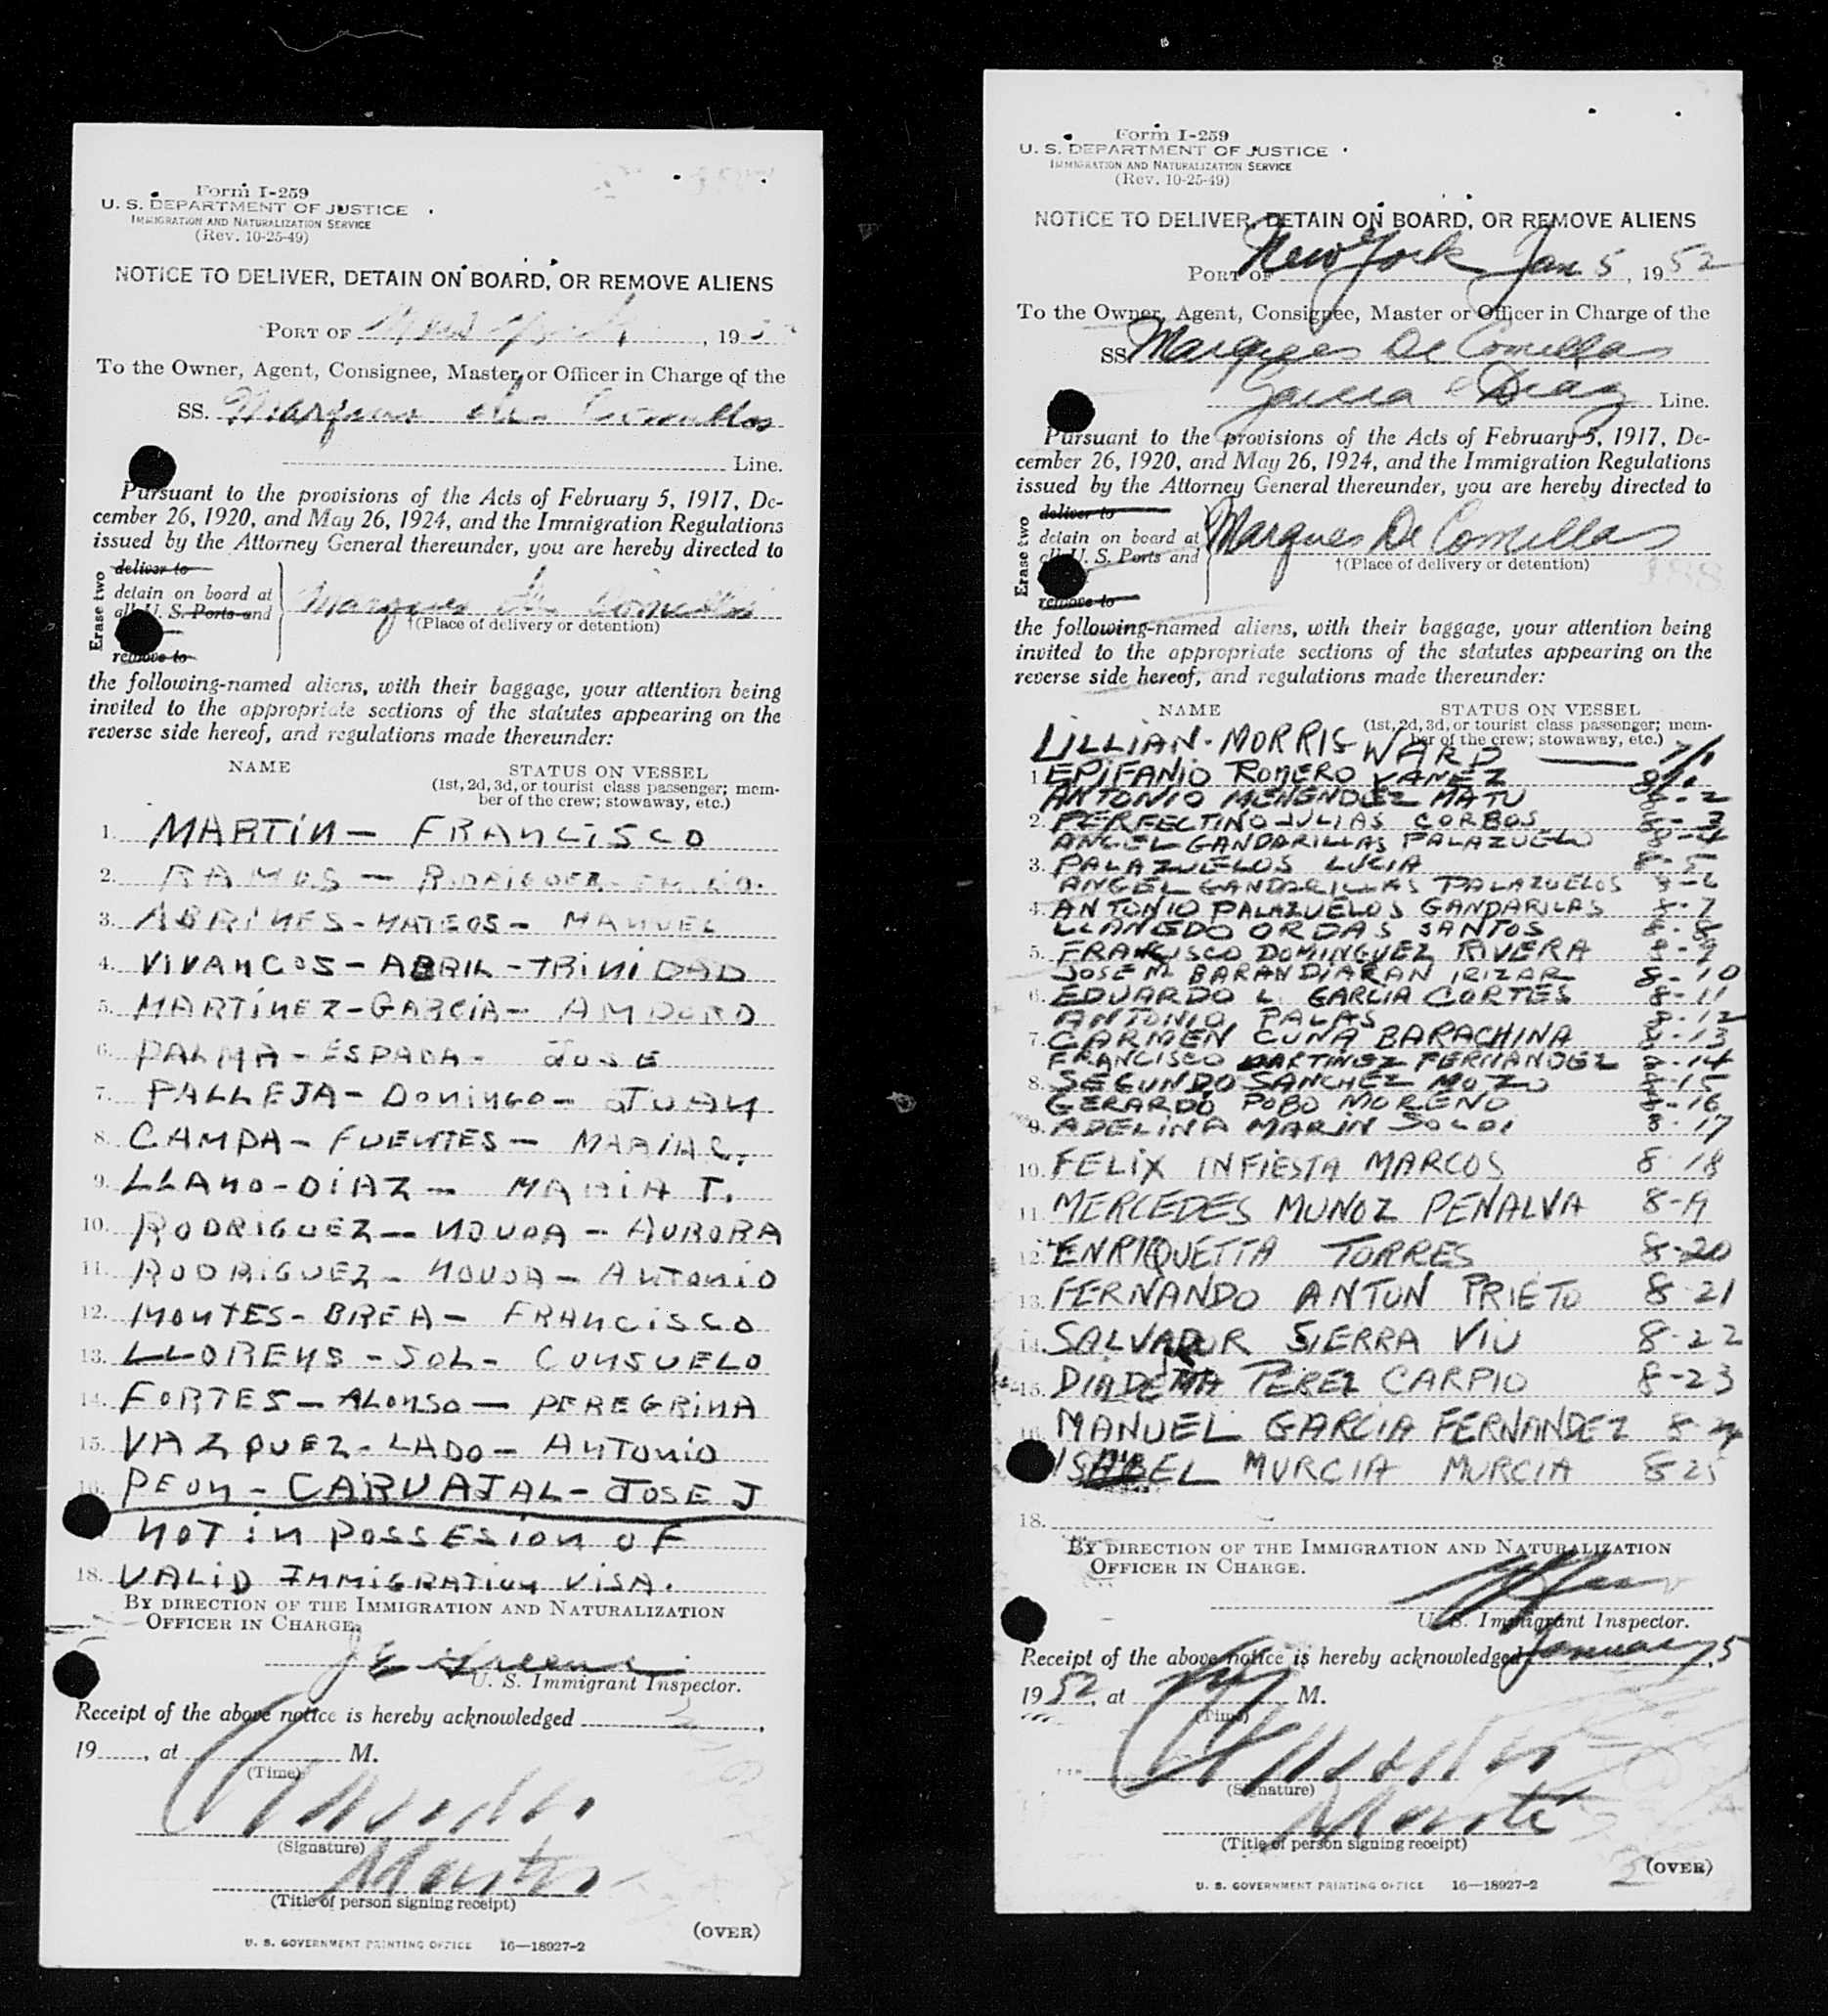 Form I-259
U. S. DEPARTMENT OF JUSTICE
IMMIGRATION AND NATURALIZATION SERVICE
(Rev. 10-25-49)
NOTICE TO DELIVER, DETAIN ON BOARD, OR REMOVE ALIENS
PORT OF New York, 195
To the Owner, Agent, Consignee, Master or Officer in Charge of the
SS. Marques de Comillas
Line.
Pursuant to the provisions of the Acts of February 5, 1917, De-
cember 26, 1920, and May 26, 1924, and the Immigration Regulations
issued by the Attorney General thereunder, you are hereby directed to
Erase two
deliver to
detain on board at
all U. S. Ports and
remove to
Marques de Comillas
†(Place of delivery or detention)
the following-named aliens, with their baggage, your attention being
invited to the appropriate sections of the statutes appearing on the
reverse side hereof, and regulations made thereunder:
NAME STATUS ON VESSEL
(1st, 2d, 3d, or tourist class passenger; mem-
ber of the crew; stowaway, etc.)
1. MARTIN - FRANCISCO
2. RAMOS - RODRIGUEZ - EMILIO.
3. ABRINES - MATEOS - MANUEL
4. VIVANCOS - ABRIL - TRINIDAD
5. MARTINEZ - GARCIA - AMDORO
6. PALMA - ESPADA - JOSE
7. PALLEJA - DOMINGO - JUAN
8. CAMPA - FUENTES - MARIA C.
9. LLANO - DIAZ - MARIA T.
10. RODRIGUEZ - NOVOA - AURORA
11. RODRIGUEZ - NOVOA - ANTONIO
12. MONTES - BREA - FRANCISCO
13. LLORENS - SOL - CONSUELO
14. FORTES - ALONSO - PEREGRINA
15. VAZQUEZ - LADO - ANTONIO
16. PEON - CARVAJAL - JOSE J
NOT IN POSSESION OF
18. VALID IMMIGRATION VISA.
BY DIRECTION OF THE IMMIGRATION AND NATURALIZATION
OFFICER IN CHARGE.
J E Greene
U. S. Immigrant Inspector.
Receipt of the above notice is hereby acknowledged
19, at M.
(Time)
(Signature)
(Title of person signing receipt)
(OVER)
U. S. GOVERNMENT PRINTING OFFICE 16—18927-2
Form I-259
U. S. DEPARTMENT OF JUSTICE
IMMIGRATION AND NATURALIZATION SERVICE
(Rev. 10-25-49)
NOTICE TO DELIVER, DETAIN ON BOARD, OR REMOVE ALIENS
PORT OF New York Jan 5, 1952
To the Owner, Agent, Consignee, Master or Officer in Charge of the
SS. Marques De Comillas
Garcia & Diaz Line.
Pursuant to the provisions of the Acts of February 5, 1917, De-
cember 26, 1920, and May 26, 1924, and the Immigration Regulations
issued by the Attorney General thereunder, you are hereby directed to
Erase two
deliver to
detain on board at
all U. S. Ports and
remove to
Marques De Comillas
†(Place of delivery or detention)
the following-named aliens, with their baggage, your attention being
invited to the appropriate sections of the statutes appearing on the
reverse side hereof, and regulations made thereunder:
NAME STATUS ON VESSEL
(1st, 2d, 3d, or tourist class passenger; mem-
ber of the crew; stowaway, etc.)
LILLIAN - MORRIS WARD — 7/1
1. EPIFANIO ROMERO YANEZ 8/1
ANTONIO MENENDEZ MATU 8-2
2. PERFECTINO JULIAS CORBOS 8-3
ANGEL GANDARILLAS PALAZUELO 8-4
3. PALAZUELOS LUCIA 8-5
ANGEL GANDARILLAS PALAZUELOS 8-6
4. ANTONIO PALAZUELOS GANDARILAS 8-7
LLANEDO ORDAS SANTOS 8-8
5. FRANCISCO DOMINGUEZ RIVERA 8-9
JOSE M. BARANDIARAN IRIZAR 8-10
6. EDUARDO L. GARCIA CORTES 8-11
ANTONIO PALAS 8-12
7. CARMEN CUNA BARACHINA 8-13
FRANCISCO MARTINEZ FERNANDEZ 8-14
8. SEGUNDO SANCHEZ MOZO 8-15
GERARDO POBO MORENO 8-16
9. ADELINA MARIN SOLDI 8-17
10. FELIX INFIESTA MARCOS 8-18
11. MERCEDES MUNOZ PENALVA 8-19
12. ENRIQUETTA TORRES 8-20
13. FERNANDO ANTON PRIETO 8-21
14. SALVADOR SIERRA VIU 8-22
15. DIADEMA PEREZ CARPIO 8-23
16. MANUEL GARCIA FERNANDEZ 8-24
ISABEL MURCIA MURCIA 8-25
18.
BY DIRECTION OF THE IMMIGRATION AND NATURALIZATION
OFFICER IN CHARGE.
U. S. Immigrant Inspector.
Receipt of the above notice is hereby acknowledged January, 5
1952, at M.
(Time)
(Signature)
(Title of person signing receipt)
(OVER)
U. S. GOVERNMENT PRINTING OFFICE 16—18927-2